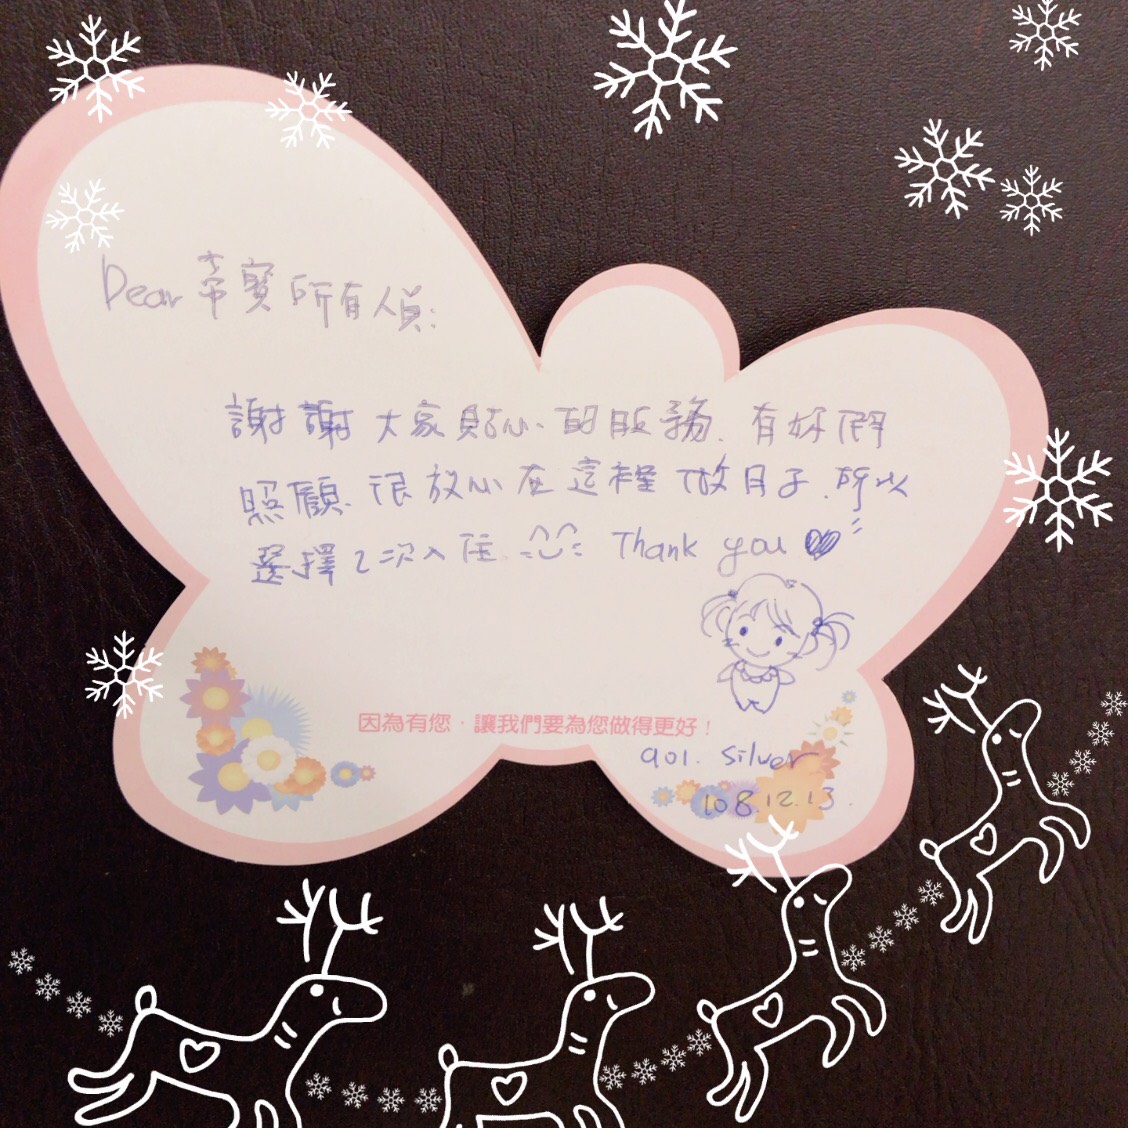 Dear 蒂寶所有人員:
謝謝大家貼心的服務. 有妳們
照顧. 很放心在這裡做月子. 所以
選擇2次入住. Thank you
因為有您，讓我們要為您做得更好！
901. Silver
108.12.13.